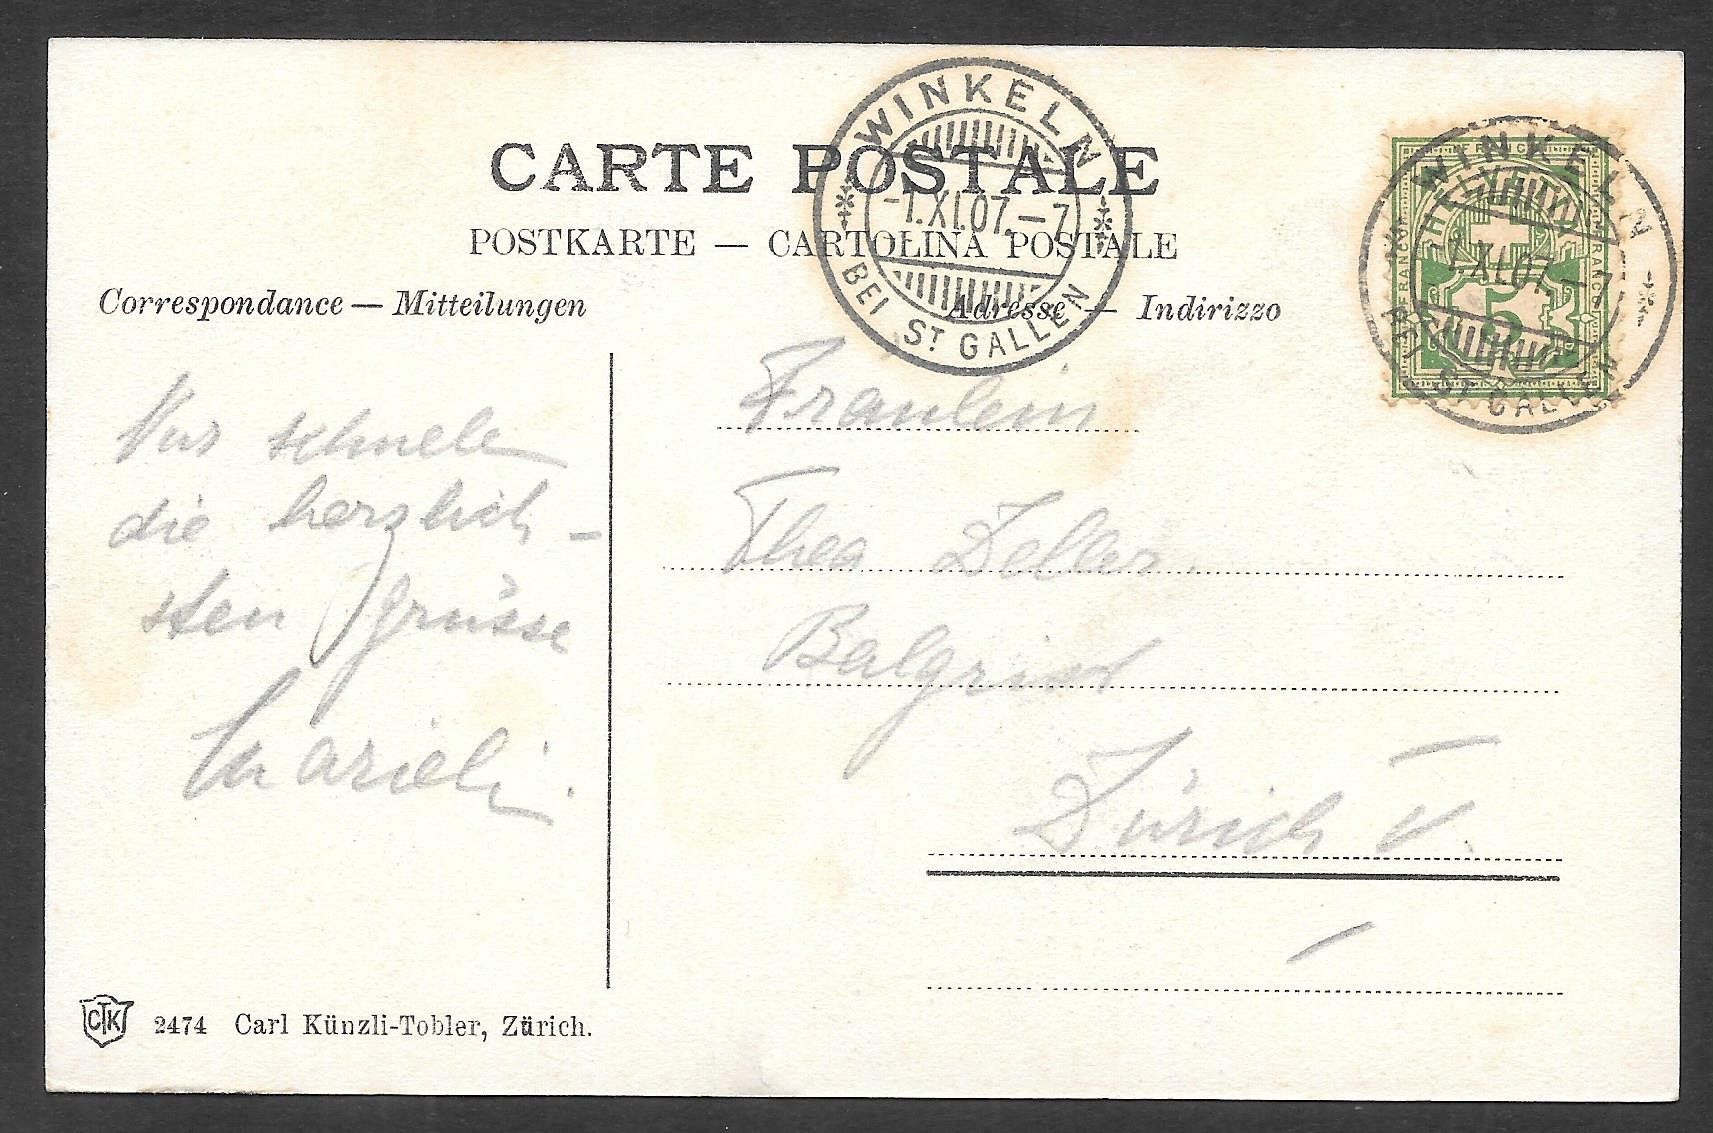 CARTE POSTALE
POSTKARTE — CARTOLINA POSTALE
Correspondance — Mitteilungen
Adresse — Indirizzo
WINKELN
-1.XI.07.–7
BEI ST GALLEN
WINKELN
XI.07.
BEI ST GALLEN
FRANCO
5
Nur schnele
die herzlich-
sten Grüsse
Marieli.
Fraulein
Thea Zeller.
Balgrist
Zürich V.
CTK
2474 Carl Künzli-Tobler, Zürich.